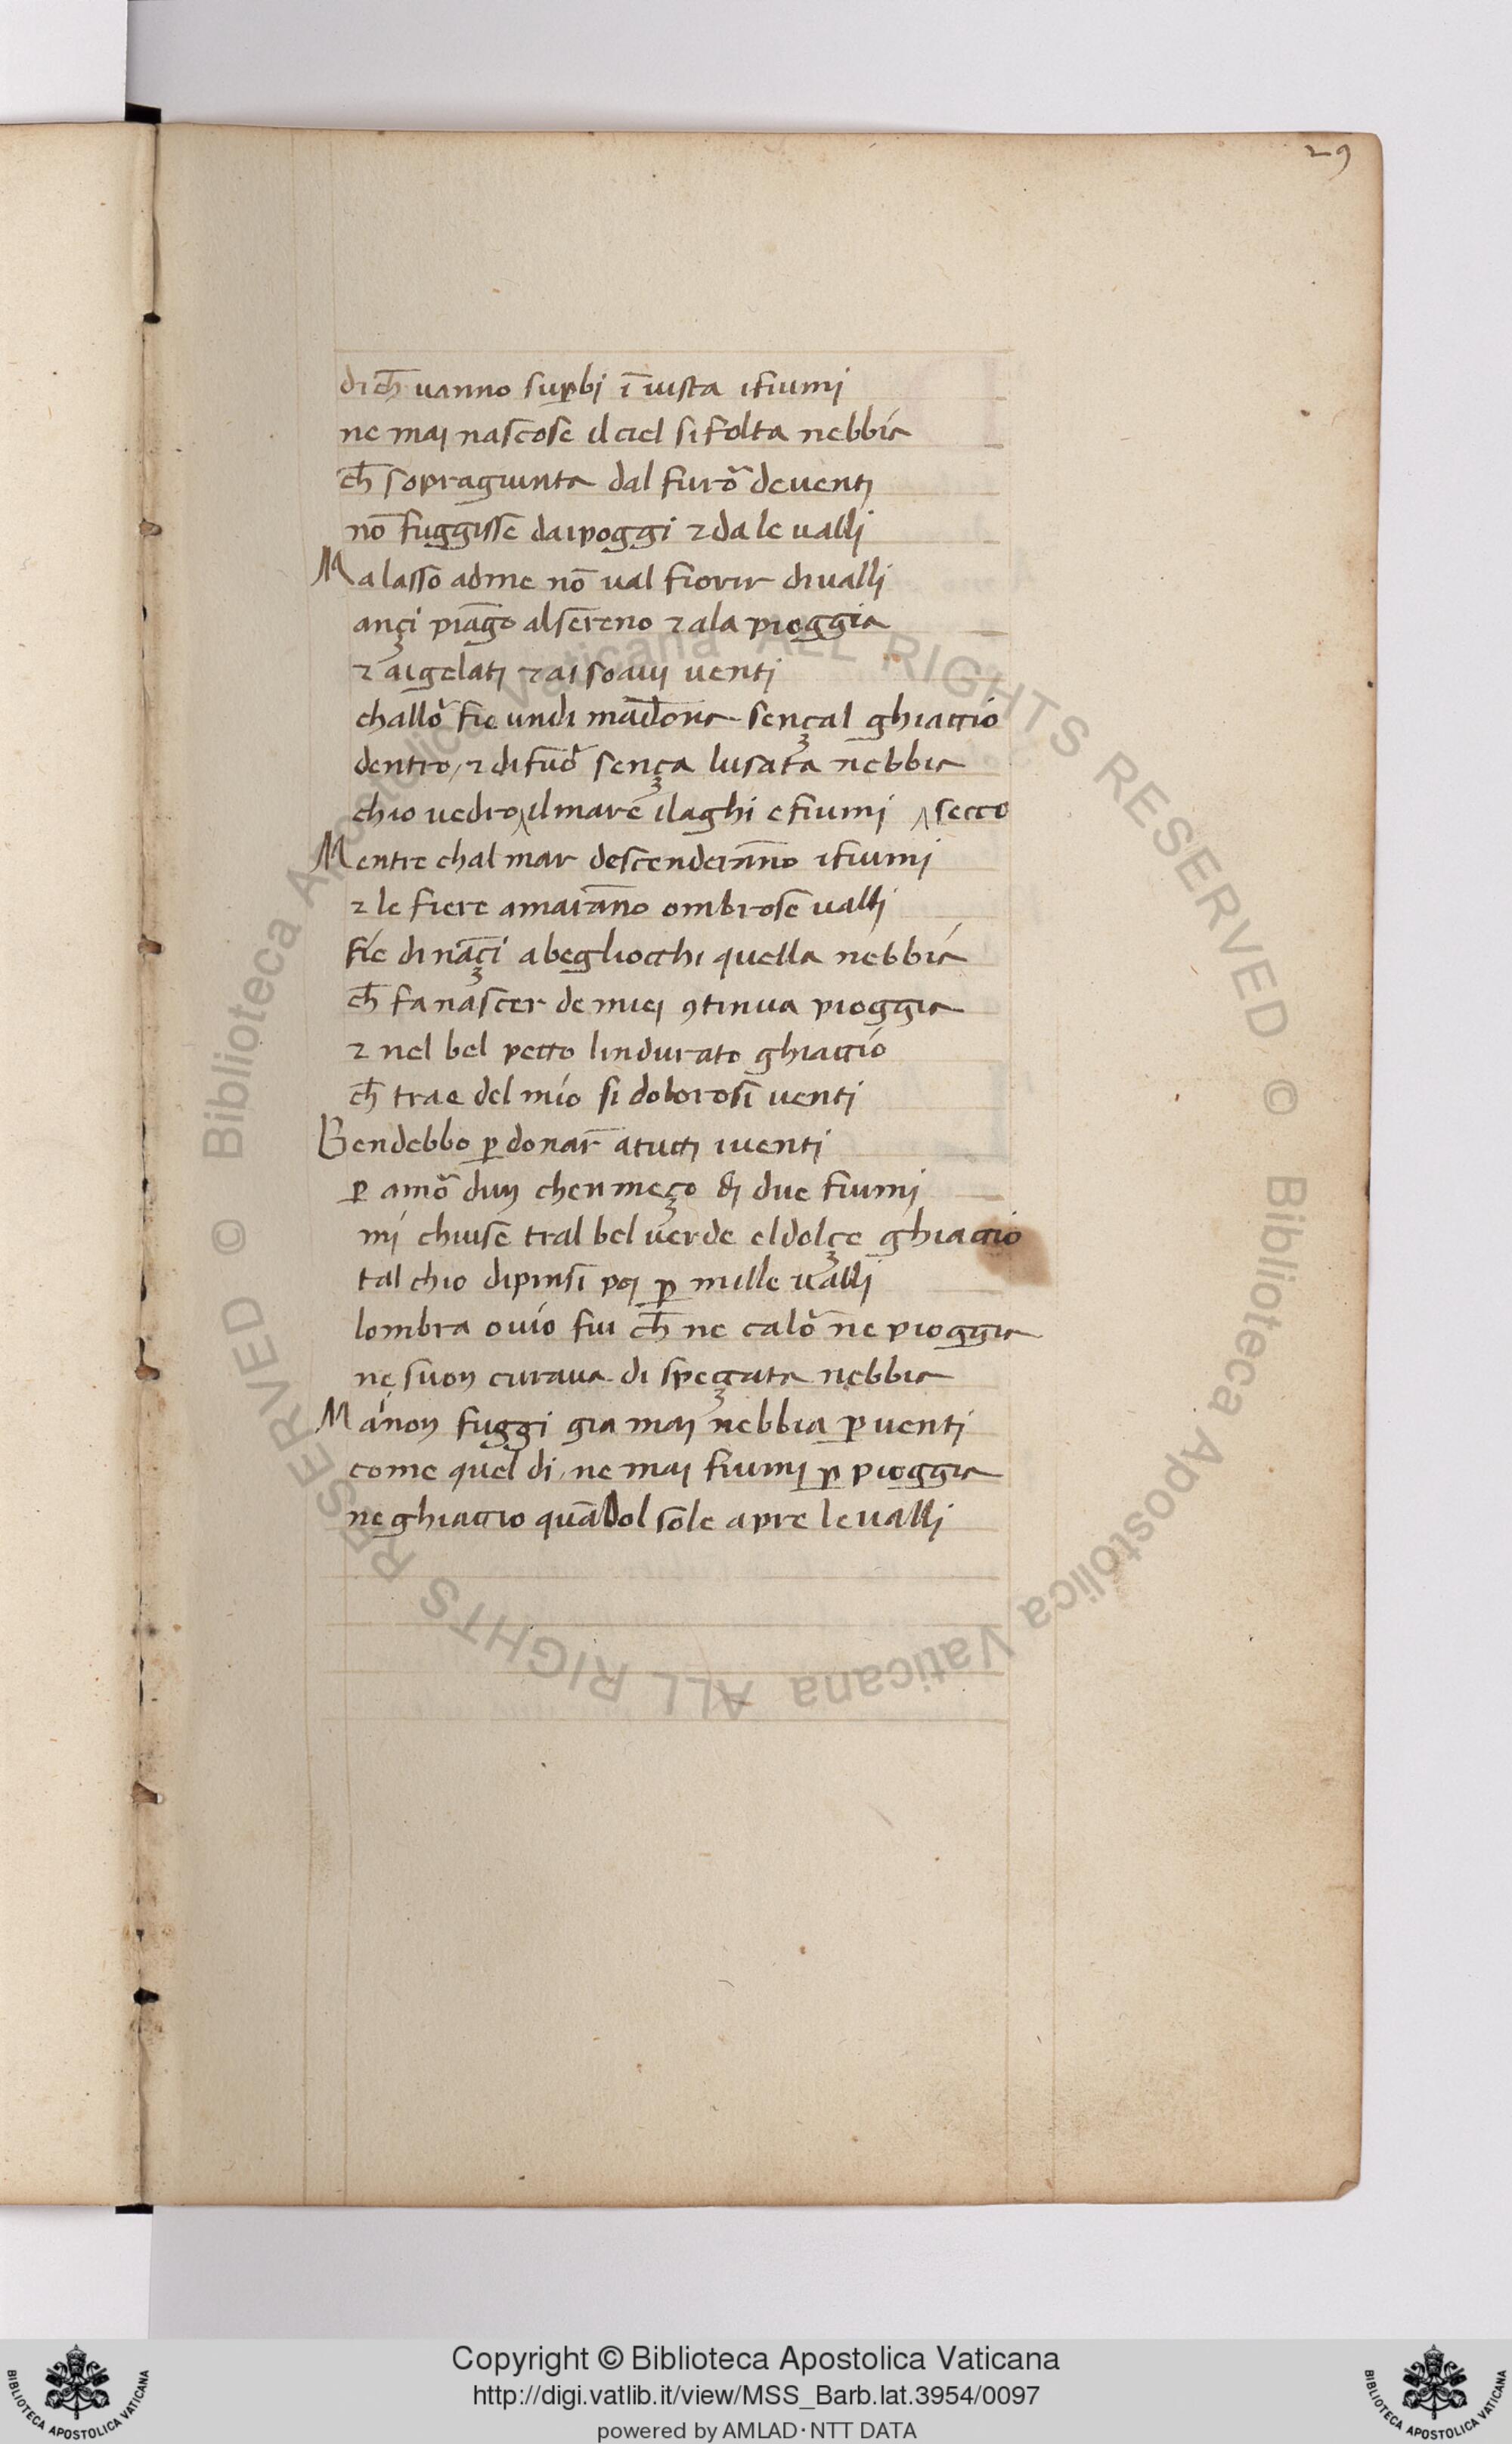 29
di ch̄ uanno sup̱bi ī iusta ifiumi
ne mai nascose il ciel si folta nebbia
ch̄ sopragiunta dal furo᷑ deuenti
nō fuggisse daipoggi ⁊ da le ualli
Ma lasso adme nō ual fiorir diualli
ançi piāgo alsereno ⁊ ala pioggia
⁊ aigelati ⁊ ai soaui uenti
challo᷑ fie undi madona sençal ghiaccio
dentro / ⁊ di fuo᷑ sença lusata nebbia
chio uedro ‸ ilmare ilaghi efiumi ‸ secco
Mentre chal mar descenderāno ifiumi
⁊ le fiere amarāno ombrose ualli
fie dināçi abegliocchi quella nebbia
ch̄ fa nascer de miei ꝯtinua pioggia
⁊ nel bel petto lindurato ghiaccio
ch̄ trae del mio si dolorosi uenti
Bendebbo ꝑdonar atutti iuenti
ꝑ amo᷑ dun chen meço di due fiumi
mi chiuse tral bel uerde eldolçe ghiaccio
tal chio dipinsi poi ꝑ mille ualli
lombra ouio fui ch̄ ne calo᷑ ne pioggia
ne suon curaua di speççata nebbia
Ma non fuggi gia mai nebbia ꝑ uenti
come quel di / ne mai fiumi ꝑ pioggia
ne ghiaccio quādol sole apre leualli
© Biblioteca Apostolica Vaticana ALL RIGHTS RESERVED © Biblioteca Apostolica Vaticana ALL RIGHTS RESERVED
Copyright © Biblioteca Apostolica Vaticana
http://digi.vatlib.it/view/MSS_Barb.lat.3954/0097
powered by AMLAD·NTT DATA
BIBLIOTECA APOSTOLICA VATICANA
BIBLIOTECA APOSTOLICA VATICANA